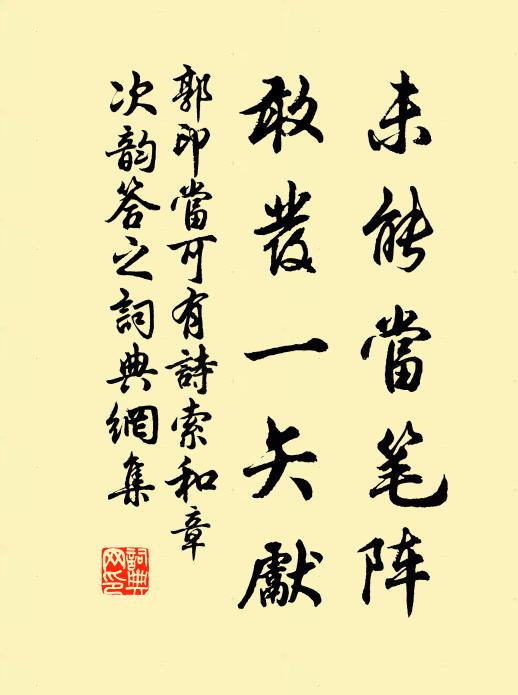 未能當笔阵
敢發一矢獻
郭印當可有詩索和章
次韵答之詞典網集
詞典网印